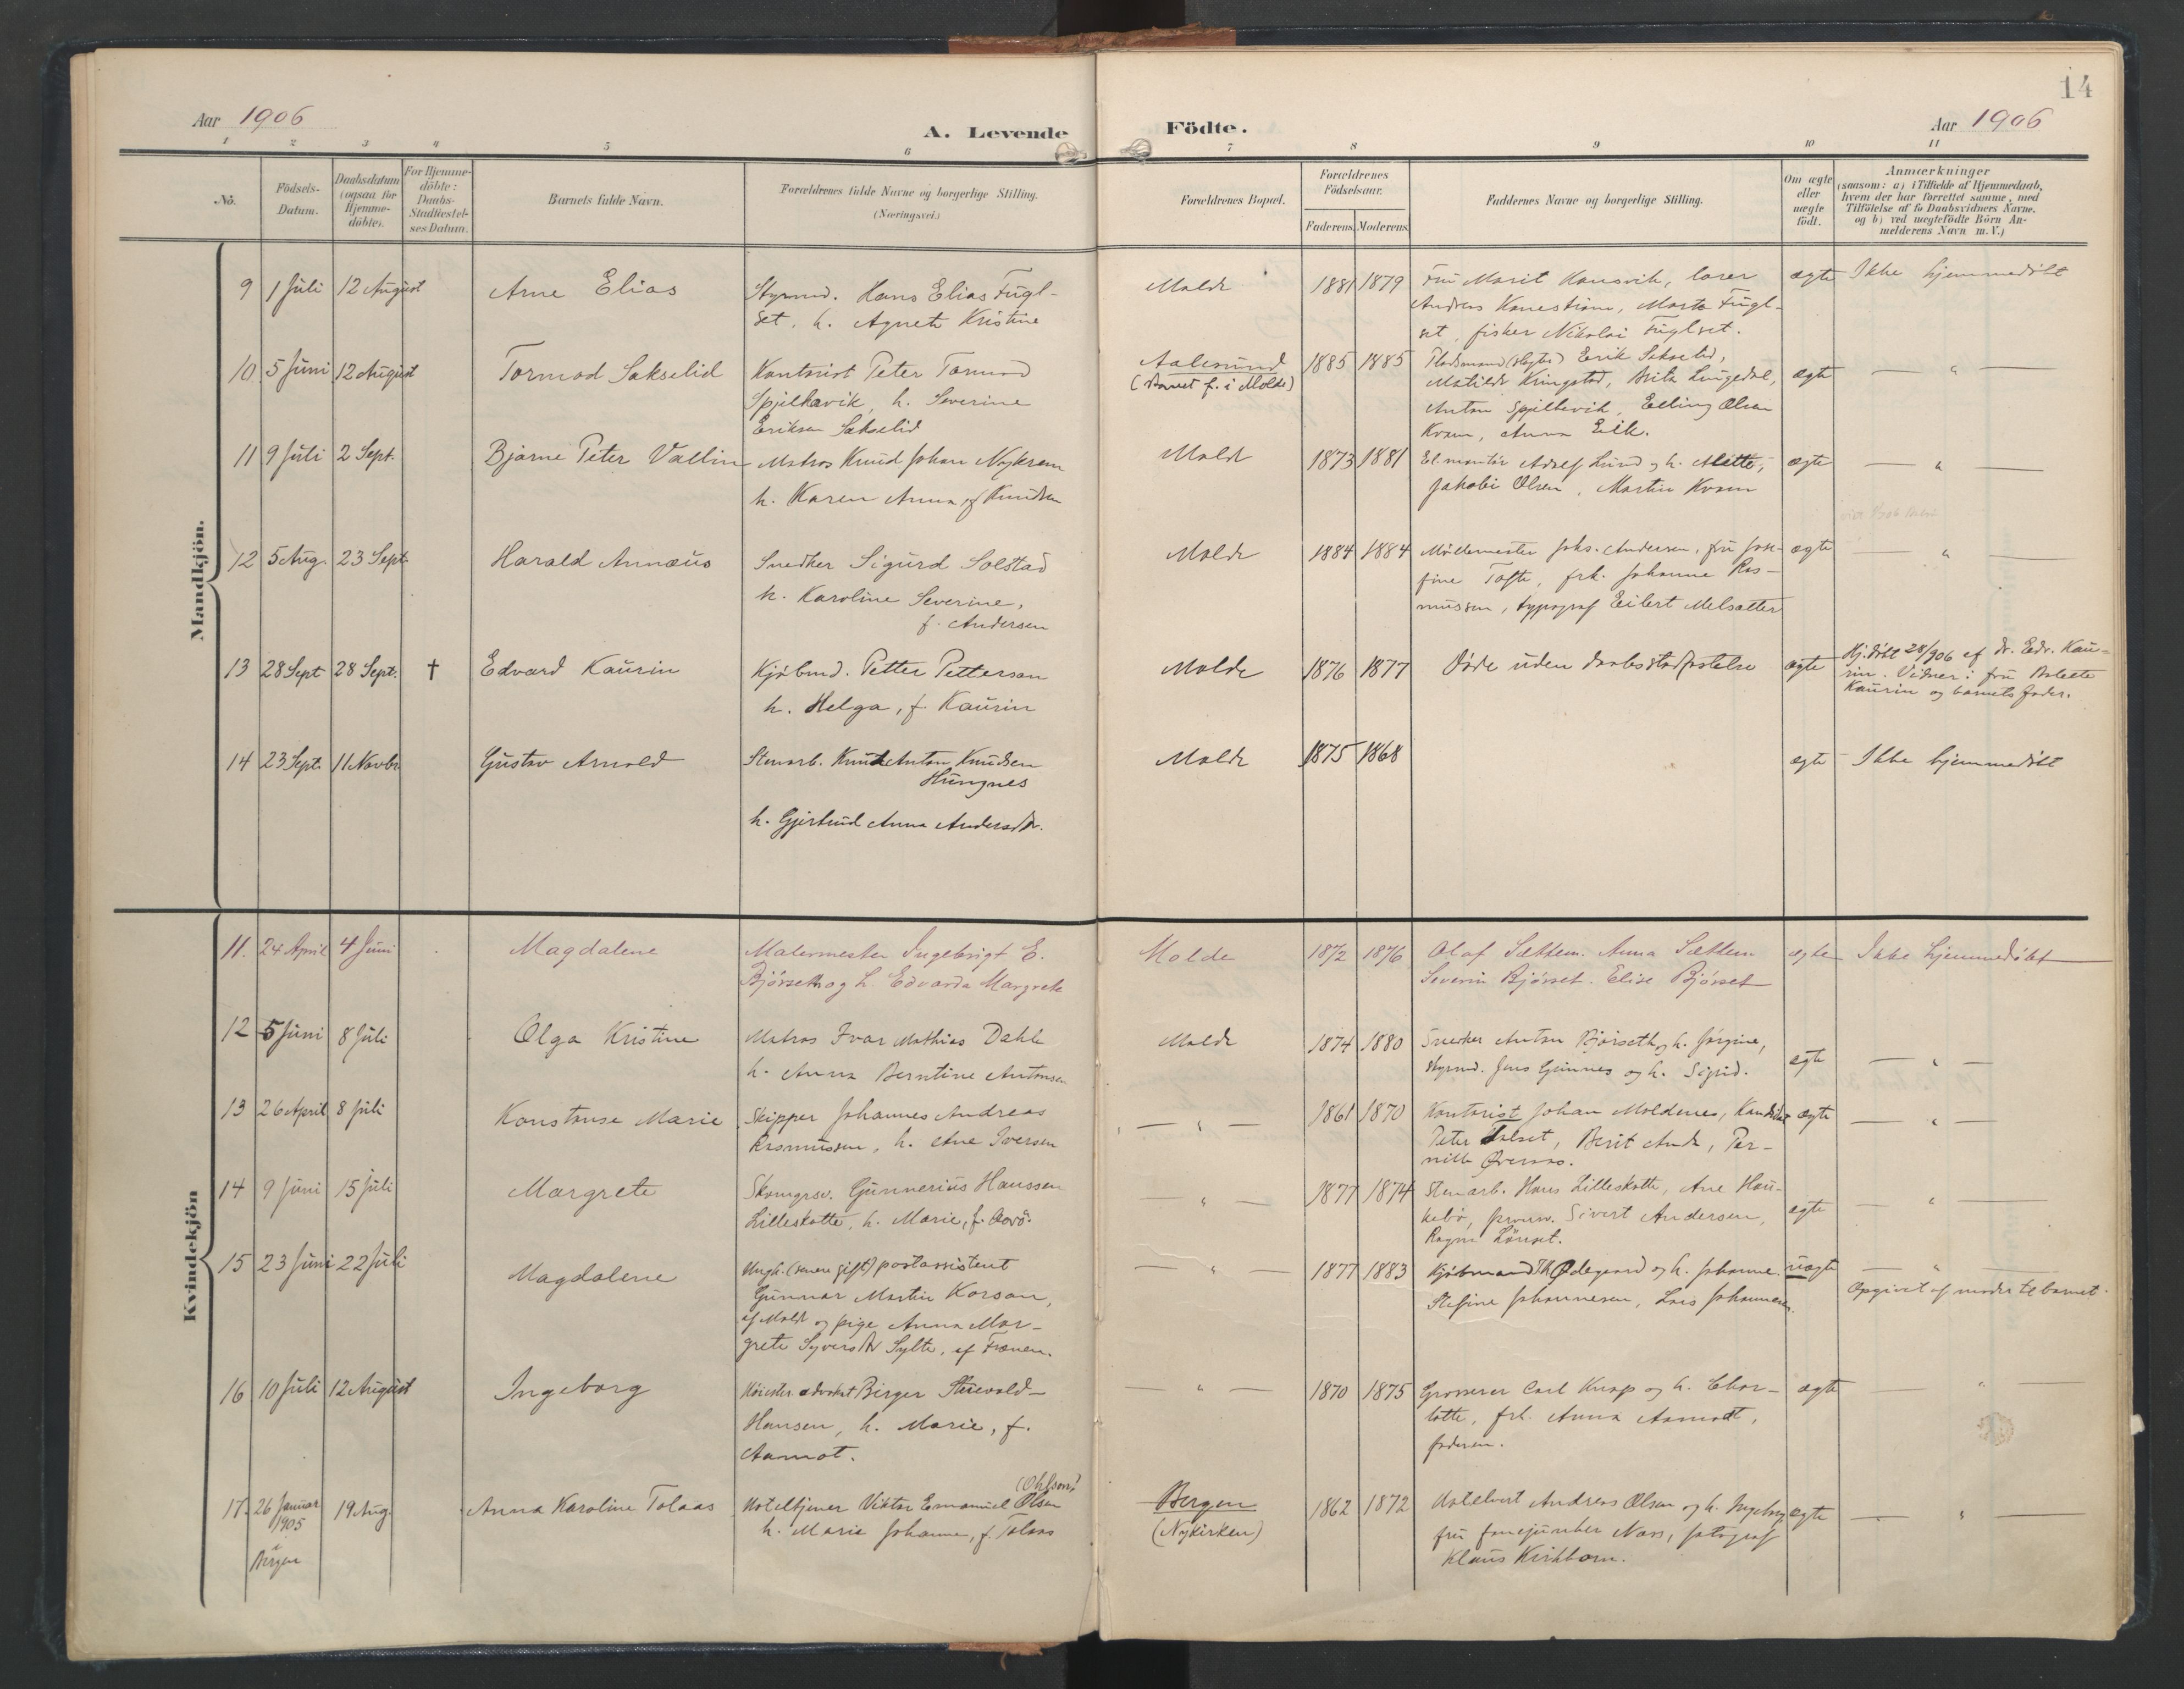 14
Aar 1906
A. Levende Födte.
Aar 1906
1 2 3 4 5 6 7 8 9 10 11
No.
Födsels-
Datum.
Daabsdatum
(ogsaa for
Hjemme-
döbte).
For Hjemme-
döbte:
Daabs-
Stadfæstel-
ses Datum.
Barnets fulde Navn.
Forældrenes fulde Navne og borgerlige Stilling.
(Næringsvei.)
Forældrenes Bopæl.
Forældrenes
Födselsaar.
Faderens. Moderens.
Faddernes Navne og borgerlige Stilling.
Om ægte
eller
uægte
födt.
Anmærkninger
(saasom: a) i Tilfælde af Hjemmedaab,
hvem der har forrettet samme, med
Tilföielse af to Daabsvidners Navne.
og b) ved uægtefödte Börn An-
melderens Navn m. V.)
Mandkjön.
9 1 Juli 12 August Arne Elias Styrmd. Hans Elias Fugl- Molde 1881 1879 Fru Marit ægte Ikke hjemmedöbt
set, h. Agnete Kristine Andreas Marta Fugl-
set, fisker Nikolai Fuglset.
10 5 Juni 12 August Tormod Sakselid Kontorist Peter Aalesund 1885 1885 Erik Sakselid, ægte — " —
Spjelkavik, h. Severine (Barnet f. i Molde) Matilde Kringstad, Brita Lingedal,
Eriksen Sakselid Anton Spjelkavik, Elling Olsen
Kvam, Anna Eik.
11 9 Juli 2 Sept. Bjarne Peter Vallin Matros Knud Johan h. Karen Anna f. Knudsen Molde 1873 1881 El. montör Adolf Lund og h. Mette, ægte — " —
Jakobi Olsen, Martin Kvam
12 5 Aug. 23 Sept. Harald Annæus Snedker Sigurd Solstad Molde 1884 1884 Johs. Andersen, fru Jose- ægte — " —
h. Karoline Severine, fine Tofte, frk. Johanne Ras-
f. Andersen mussen, typograf Eilert Melsætter
13 28 Sept 28 Sept. † Edvard Kaurin Kjöbmd. Petter Petterson Molde 1876 1877 Döde uden daabsstadfæstelse ægte Hj.döbt 28/9 06 af dr. Edv. Kau-
h. Helga, f. Kaurin rin. Vidner: fru
Kaurin og barnets fader.
14 23 Sept. 11 Novbr. Gustav Arnold Stenarb. Knut Anton Knudsen Molde 1875 1868 ægte Ikke hjemmedöbt
Hungnes
h. Gjertrud Anna Andersdtr.
Kvindekjön
11. 24 April 4 Juni Magdalene Malermester Ingebrigt E. Molde 1872 1876 Olaf Sættem. Anna Sættem ægte Ikke hjemmedöbt
Bjørseth og h. Edvarda Margrete Severin Bjørset. Elise Bjørset
12 5 Juni 8 Juli Olga Kristine Matros Ivar Mathias Dahle Molde 1874 1880 Snedker Anton Bjørseth og h. Jørgine, ægte — " —
h. Anna Berntine Antonsen styrmd. Jens Gjennes og h. Sigrid.
13 26 April 8 Juli Konstanse Marie Skipper Johannes Andreas — " — 1861 1870 Kontorist Johan Moldenes, Kandidat ægte — " —
Rasmussen, h. Ane Iversen Peter Talset, Berit Per-
nille
14 9 Juni 15 Juli Margrete Skomgrsv. Gunnerius Hanssen — " — 1877 1874 Stenarb. Hans Lilleskotte, Ane Hau- ægte — " —
Lilleskotte, h. Marie, f. Sivert Andersen,
Ragna Lönset.
15 23 Juni 22 Juli Magdalene Ungk. (senere gift) postassistent — " — 1877 1883 Kjöbmand Th Ødegaard og h. Johanne. uægte — " —
Gunnar Martin Korsan, Stefine Johannesen, Lars Johannesen. Opgivet af moder til barnet.
af Molde og pige Anna Mar-
grete Syversdtr Sylte, af Frænen.
16 10 Juli 12 August Ingeborg Höiester. advokat Birger — " — 1870 1875 Grosserer Carl Knap og h. Char- ægte — " —
Hansen, h. Marie, f. lotte, frk. Anna Aamot,
Aamot. faderen.
17. 26 Januar 19 Aug. Anna Karoline Tolaas Hoteltjener Viktor Emanuel Olsen (Ohlson) Bergen 1862 1872 Hotelvert Andreas Olsen og h. Ingeborg ægte — " —
1905 h. Marie Johanne, f. Tolaas (Nykirken) fru fotograf
Bergen Klaus Kirkhorn.